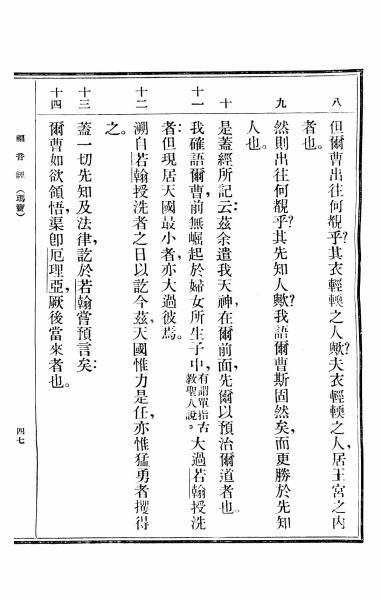 八 但爾曹出往何覩乎?其衣輕輭之人歟?夫衣輕輭之人,居王宮之內
者也。
九 然則出往何覩乎?其先知人歟?我語爾曹斯固然矣,而更勝於先知
人也。
十 是蓋經所記云:茲余遣我天神,在爾前面,先爾以預治爾道者也。
十一 我確語爾曹,前無崛起於婦女所生子中,有謂單指古教聖人說。大過若翰授洗
者:但現居天國最小者,亦大過彼焉。
十二 溯自若翰授洗者之日以訖今茲,天國惟力是任,亦惟猛勇者攫得
之。
十三 蓋一切先知及法律,訖於若翰嘗預言矣:
十四 爾曹如欲領悟,渠卽厄理亞,厥後當來者也。
福音經(瑪竇)
四七